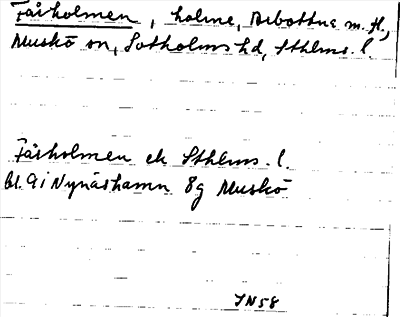 Fårholmen, holme, Arbottna m. fl.,
Muskö sn, Sotholms hd, Sthlms. l.
Fårholmen ek Sthlms. l.
bl. 9i Nynäshamn 8g Muskö
JN58